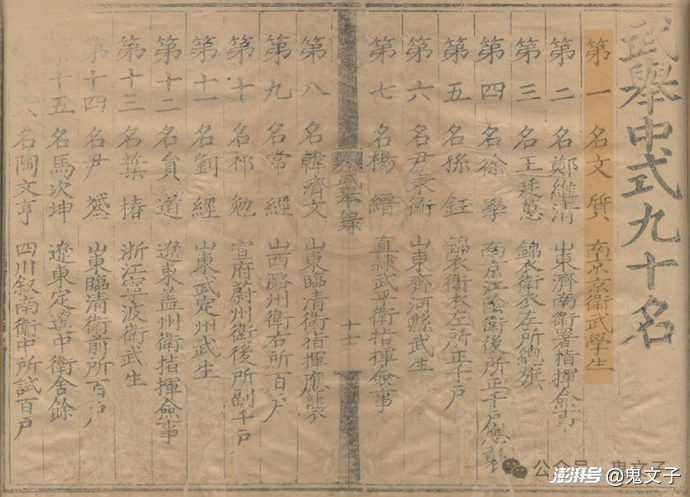 武舉中式九十名
第一名文質 南京京衛武學生
第二名鄭維清 山東濟南衛署指揮僉事
第三名王 錦衣衛衣左所總旗
第四名徐學 南京江陰衛後所正千戶應襲
第五名孫鈺 錦衣衛衣左所正千戶
第六名尹秉衡 山東齊河縣武生
第七名楊縉 直隸武平衛指揮僉事
武舉錄
第八名韓濟文 山東臨清衛指揮應襲
第九名常經 山西潞州衛右所百戶
第十名祁勉 宣府蔚州衛後所副千戶
第十一名劉經 山東武定州武生
第十二名貟道 遼東盖州衛指揮僉事
第十三名葉椿 浙江寧波衛武生
第十四名尹 山東臨清衛前所百戶
十五名馬次坤 遼東定遼中衛舍餘
六名陶文亨 四川叙南衛中所試百戶
公众号 鬼文子
澎湃号@鬼文子